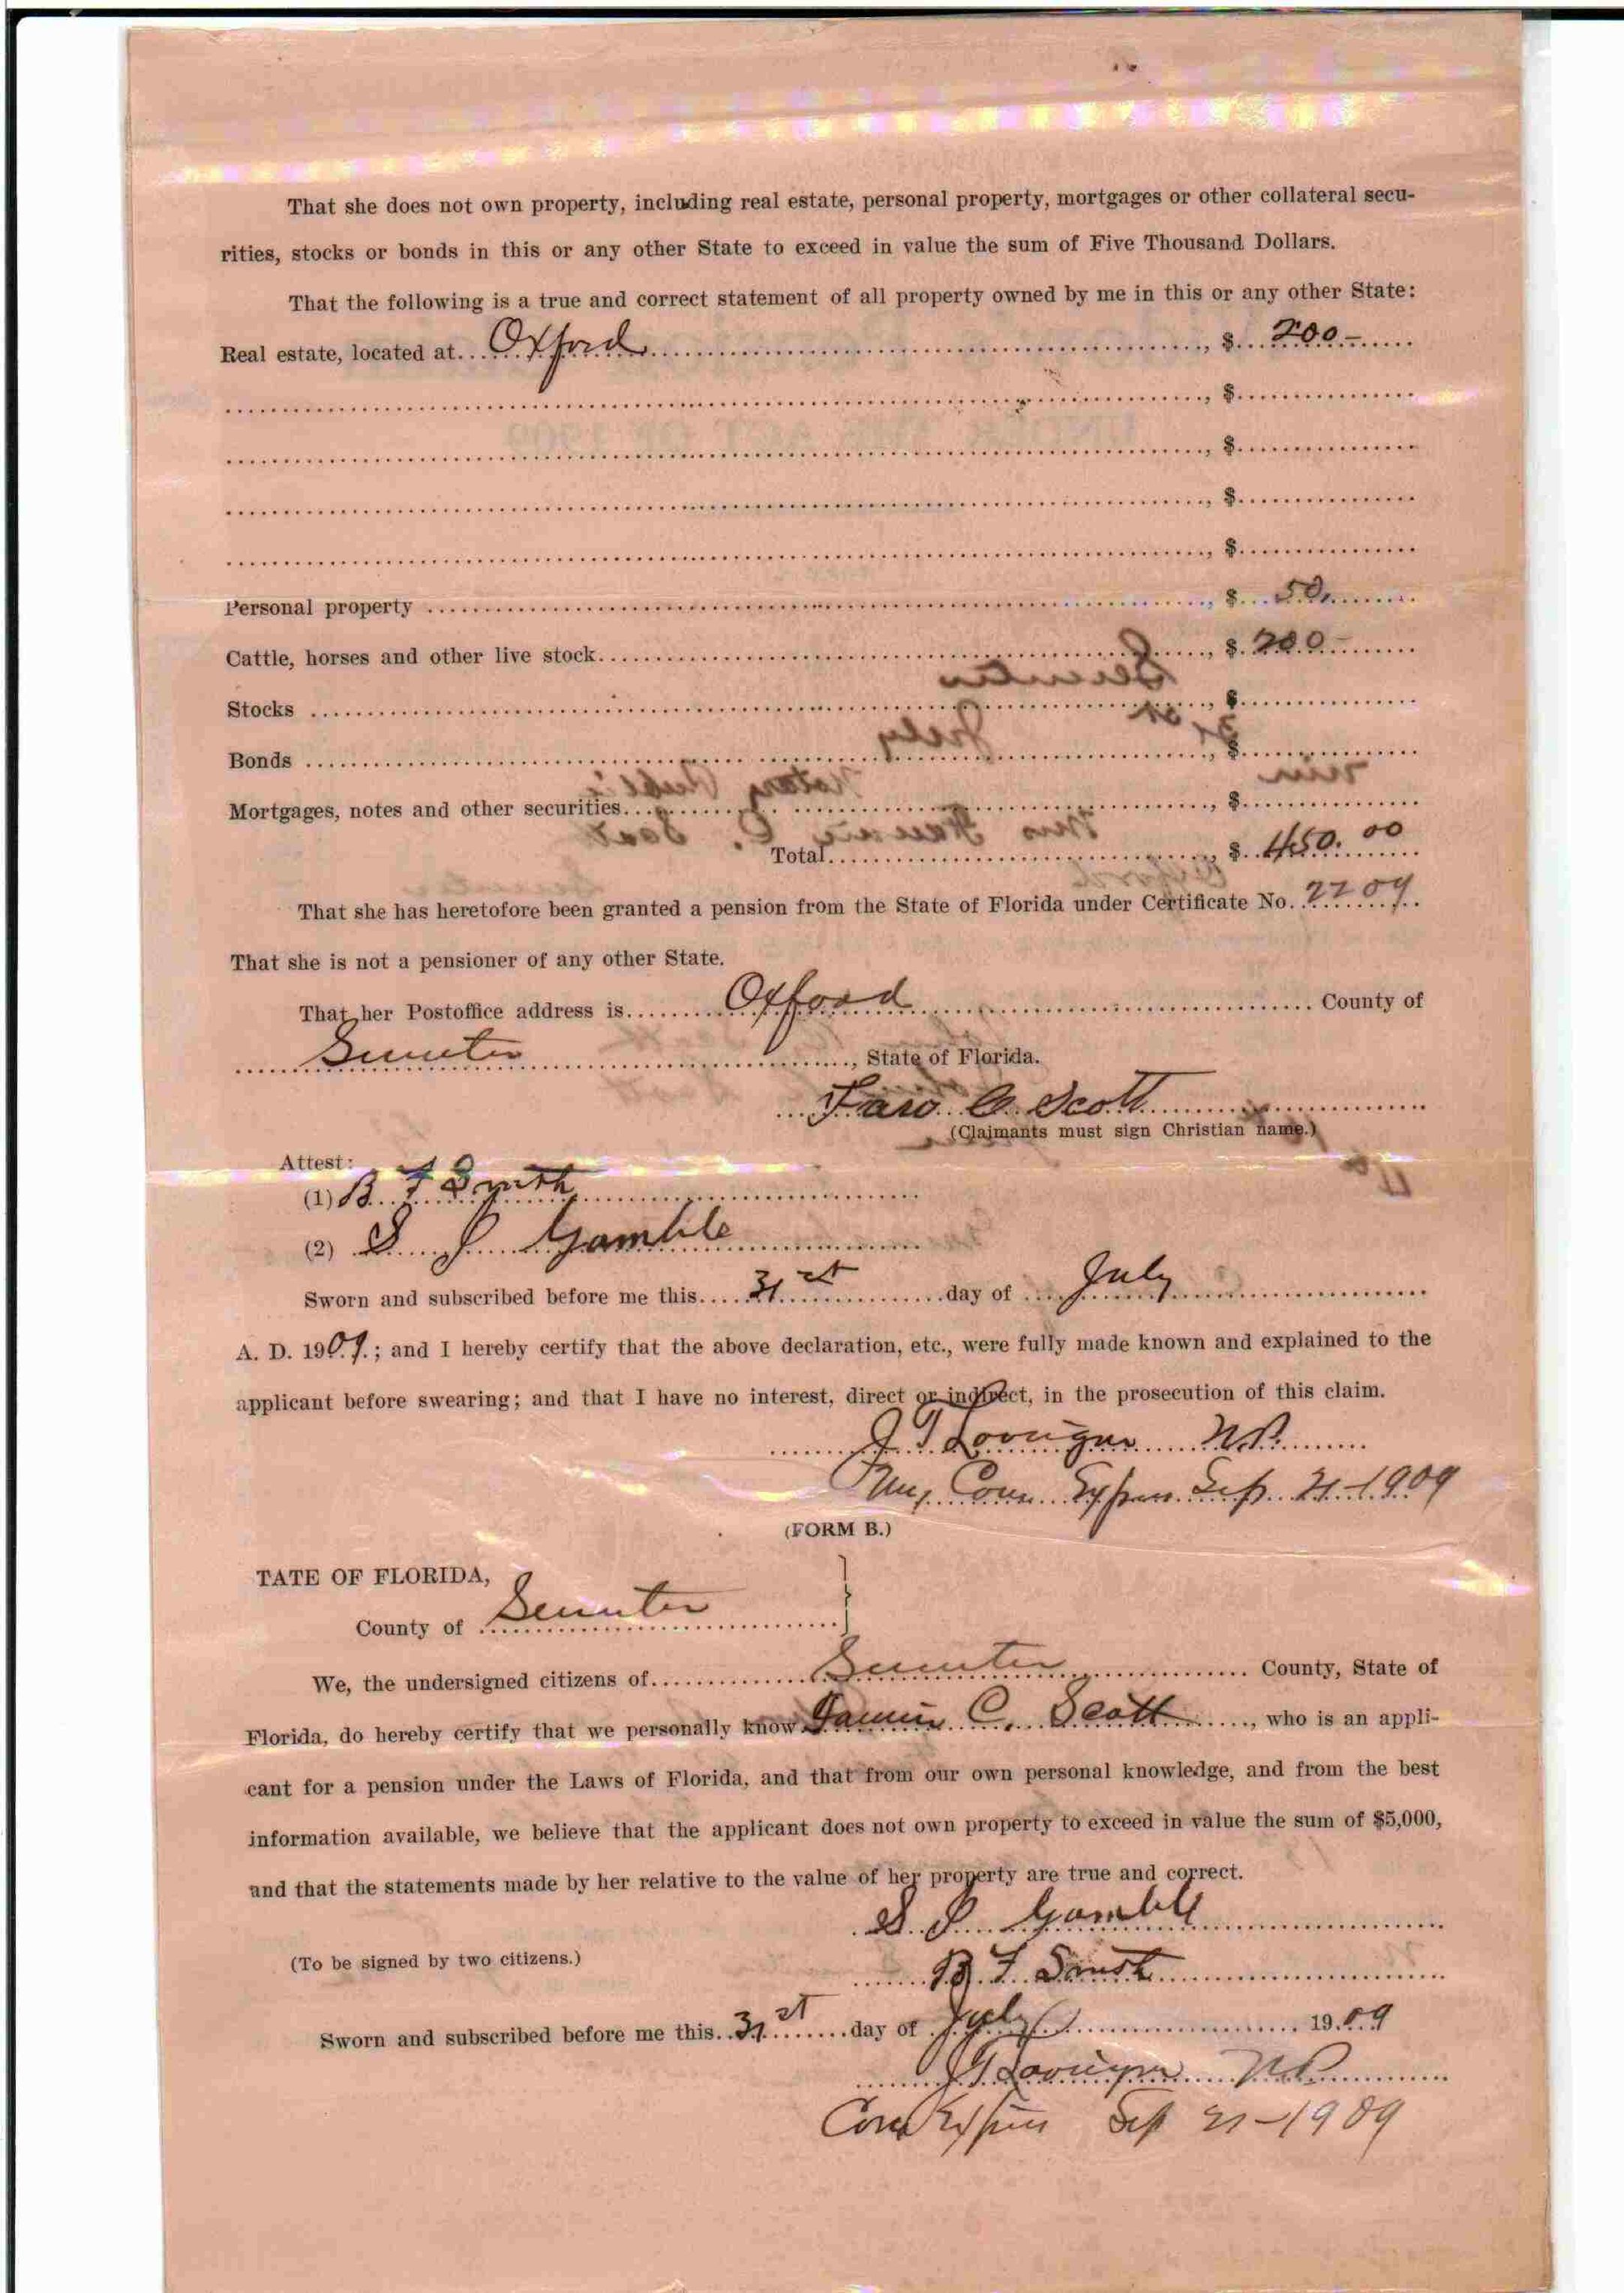 That she does not own property, including real estate, personal property, mortgages or other collateral secu-
rities, stocks or bonds in this or any other State to exceed in value the sum of Five Thousand Dollars.
That the following is a true and correct statement of all property owned by me in this or any other State:
Real estate, located at Oxford, $ 200-
, $
, $
, $
, $
Personal property, $ 50
Cattle, horses and other live stock, $ 200-
Stocks, $
Bonds, $
Mortgages, notes and other securities, $
Total, $ 450.00
That she has heretofore been granted a pension from the State of Florida under Certificate No. 2209
That she is not a pensioner of any other State.
That her Postoffice address is Oxford County of
Sumter, State of Florida.
C Scott
(Claimants must sign Christian name.)
Attest:
(1) B F Smith
(2) S J Gamble
Sworn and subscribed before me this 31st day of July
A. D. 1909; and I hereby certify that the above declaration, etc., were fully made known and explained to the
applicant before swearing; and that I have no interest, direct or indirect, in the prosecution of this claim.
J T N.P.
My Com Expires Sep 21-1909
(FORM B.)
TATE OF FLORIDA,
County of Sumter }
We, the undersigned citizens of Sumter County, State of
Florida, do hereby certify that we personally know Fannie C. Scott, who is an appli-
cant for a pension under the Laws of Florida, and that from our own personal knowledge, and from the best
information available, we believe that the applicant does not own property to exceed in value the sum of $5,000,
and that the statements made by her relative to the value of her property are true and correct.
S J Gamble
(To be signed by two citizens.)
B F Smith
Sworn and subscribed before me this 31st day of July 1909
J T N.P.
Com Expires Sep 21-1909